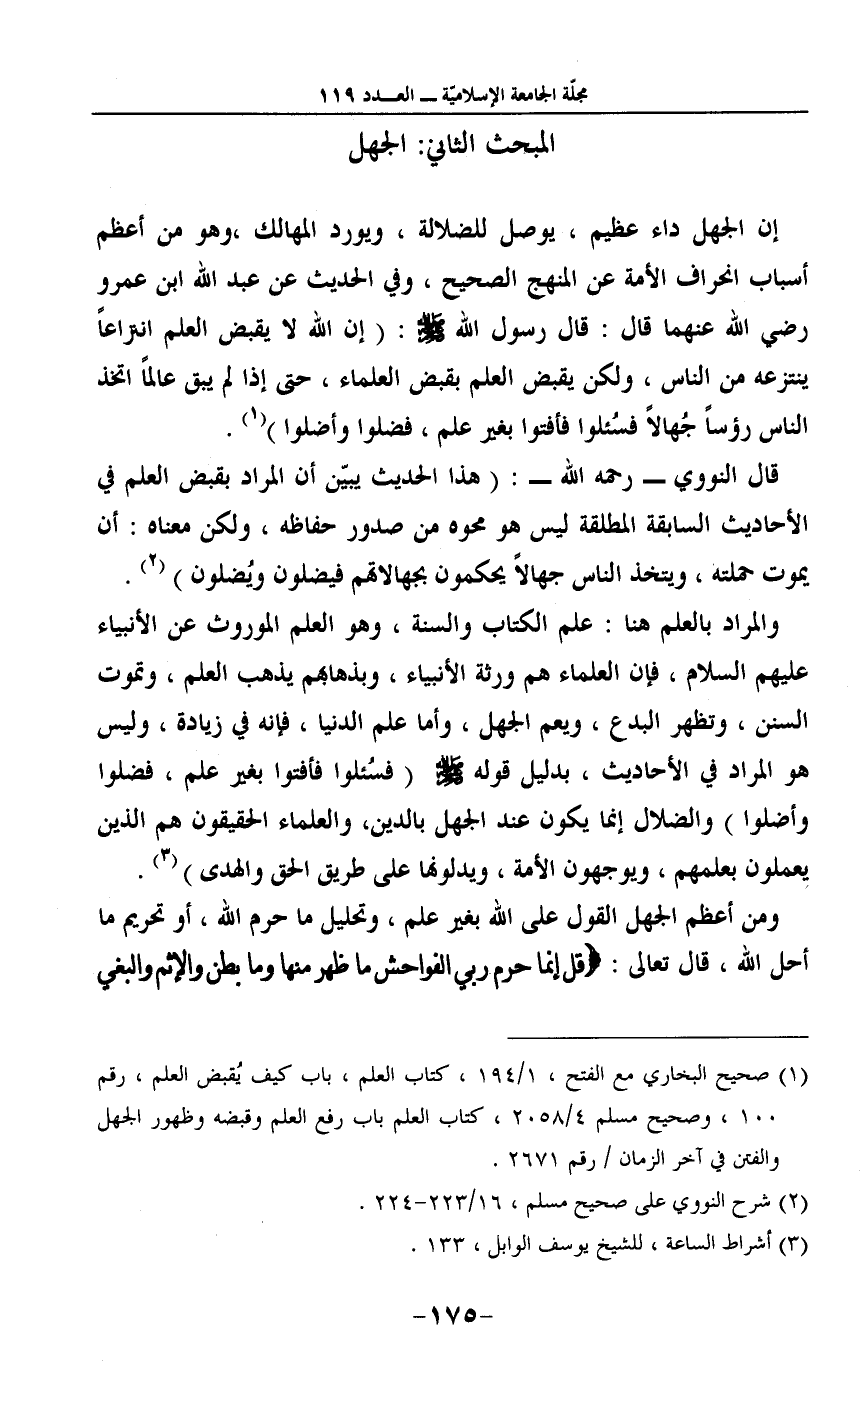 مجلّة الجامعة الإسلاميّة ــ العـــدد ١١٩
المبحث الثاني: الجهل
إن الجهل داء عظيم ، يوصل للضلالة ، ويورد المهالك ،وهو من أعظم
أسباب انحراف الأمة عن المنهج الصحيح ، وفي الحديث عن عبد الله ابن عمرو
رضي الله عنهما قال : قال رسول الله ﷺ : ( إن الله لا يقبض العلم انتزاعاً
ينتزعه من الناس ، ولكن يقبض العلم بقبض العلماء ، حتى إذا لم يبق عالماً اتخذ
الناس رؤساً جُهالاً فسُئلوا فأفتوا بغير علم ، فضلوا وأضلوا )(١) .
قال النووي ــ رحمه الله ــ : ( هذا الحديث يبيّن أن المراد بقبض العلم في
الأحاديث السابقة المطلقة ليس هو محوه من صدور حفاظه ، ولكن معناه : أن
يموت حملته ، ويتخذ الناس جهالاً يحكمون بجهالاتهم فيضلون ويُضلون )(٢) .
والمراد بالعلم هنا : علم الكتاب والسنة ، وهو العلم الموروث عن الأنبياء
عليهم السلام ، فإن العلماء هم ورثة الأنبياء ، وبذهابهم يذهب العلم ، وتموت
السنن ، وتظهر البدع ، ويعم الجهل ، وأما علم الدنيا ، فإنه في زيادة ، وليس
هو المراد في الأحاديث ، بدليل قوله ﷺ ( فسُئلوا فأفتوا بغير علم ، فضلوا
وأضلوا ) والضلال إنما يكون عند الجهل بالدين، والعلماء الحقيقون هم الذين
يعملون بعلمهم ، ويوجهون الأمة ، ويدلونها على طريق الحق والهدى )(٣) .
ومن أعظم الجهل القول على الله بغير علم ، وتحليل ما حرم الله ، أو تحريم ما
أحل الله ، قال تعالى : ﴿قل إنما حرم ربي الفواحش ما ظهر منها وما بطن والإثم والبغي
(١) صحيح البخاري مع الفتح ، ١٩٤/١ ، كتاب العلم ، باب كيف يُقبض العلم ، رقم
١٠٠ ، وصحيح مسلم ٢٠٥٨/٤ ، كتاب العلم باب رفع العلم وقبضه وظهور الجهل
والفتن في آخر الزمان / رقم ٢٦٧١ .
(٢) شرح النووي على صحيح مسلم ، ٢٢٣/١٦-٢٢٤ .
(٣) أشراط الساعة ، للشيخ يوسف الوابل ، ١٣٣ .
-١٧٥-